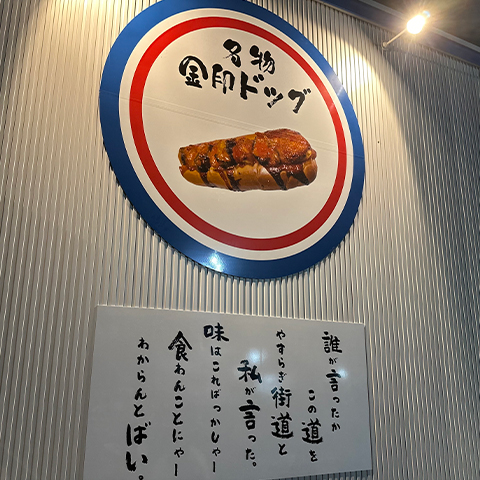 名物
金印ドッグ
誰が言ったか
この道を
やすらぎ街道と
私が言った。
味はこればっかしゃー
食わんことにゃー
わからんとばい。